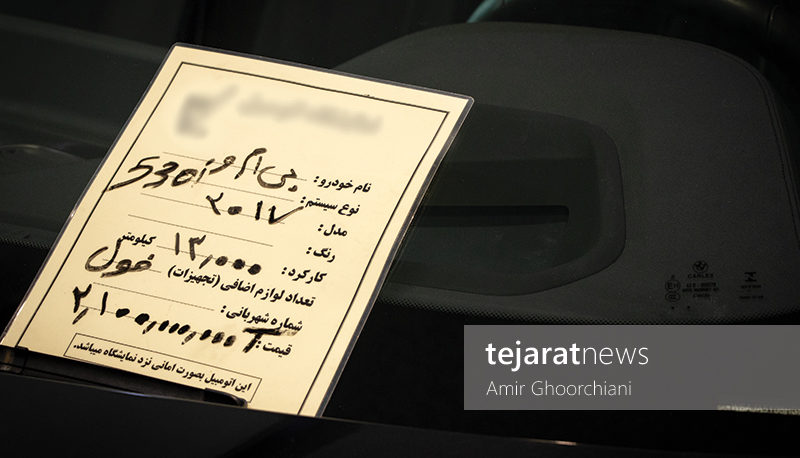 نام خودرو: بی ام و 530i
نوع سیستم:
مدل: ۲۰۱۷
رنگ:
کارکرد: ۱۳,۰۰۰ کیلومتر
تعداد لوازم اضافی (تجهیزات) فول
شماره شهربانی:
قیمت: ۲,۱۰۰,۰۰۰,۰۰۰ T
این اتومبیل بصورت امانی نزد نمایشگاه میباشد.
tejaratnews
Amir Ghoorchiani
CARLEX